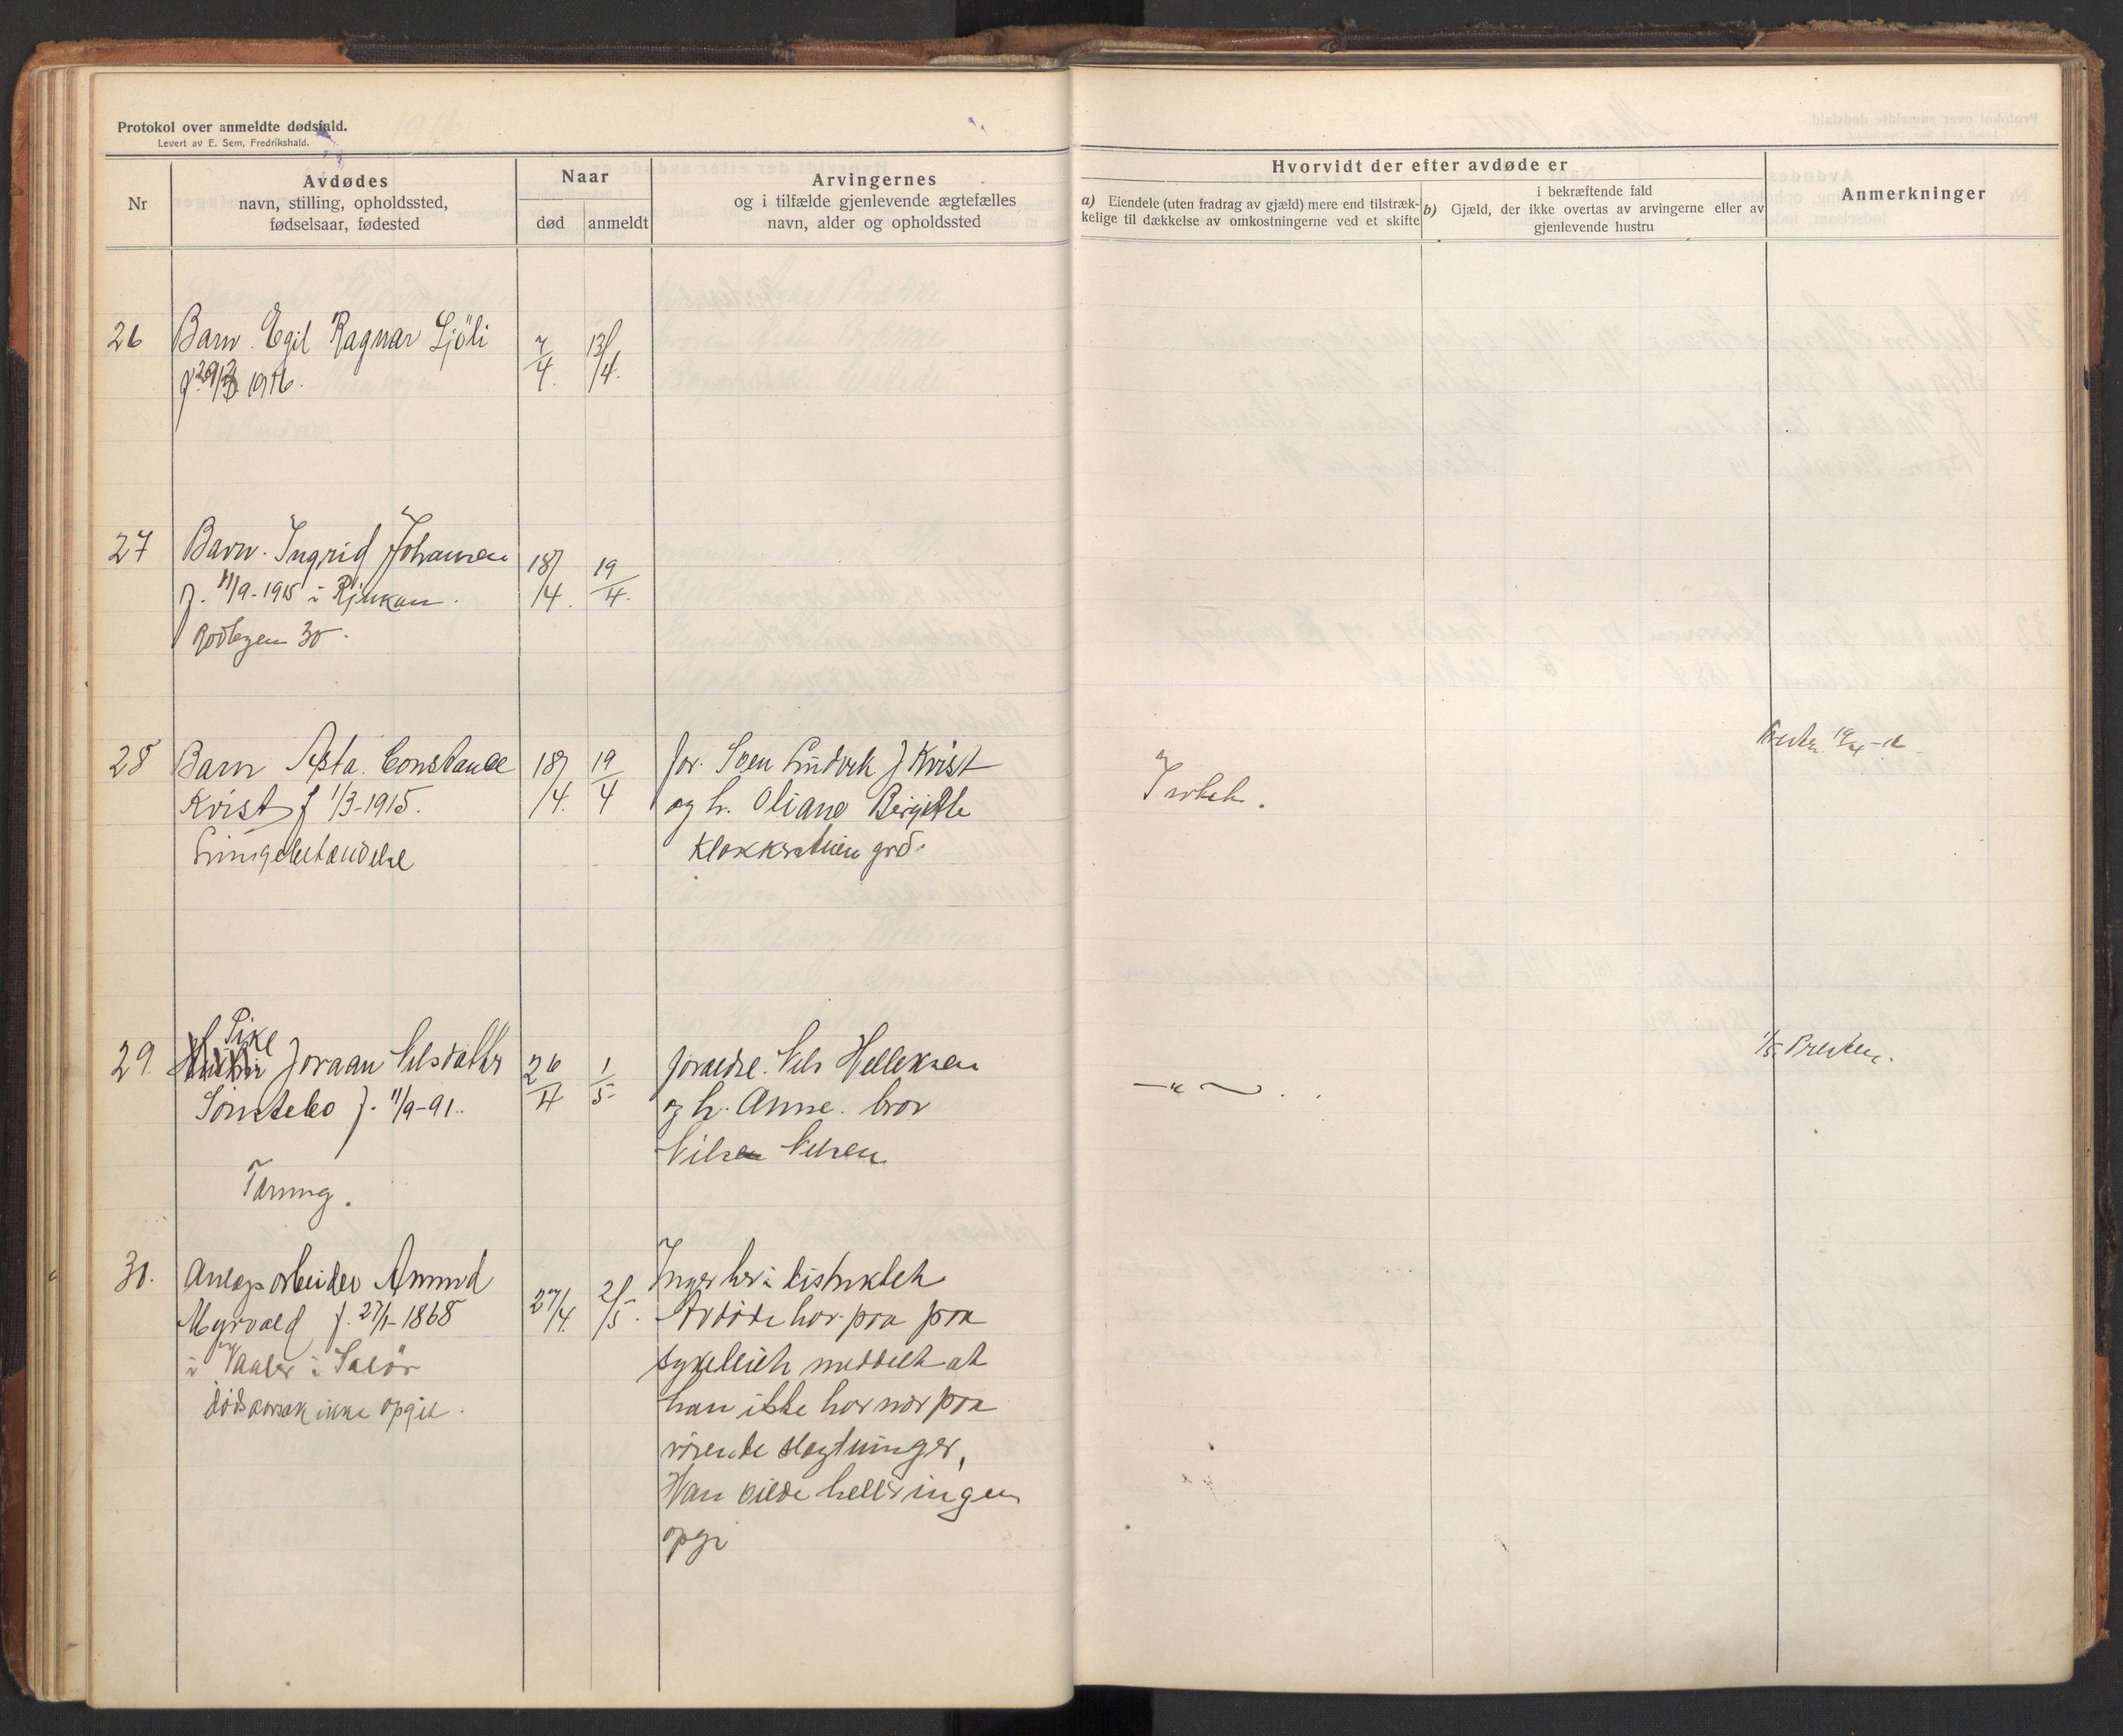 Protokol over anmeldte dødsfald.
Levert av E. Sem, Fredrikshald.
Nr
Avdødes
navn, stilling, opholdssted,
fødselsaar, fødested
Naar
død
anmeldt
Arvingernes
og i tilfælde gjenlevende ægtefælles
navn, alder og opholdssted
Hvorvidt der efter avdøde er
a) Eiendele (uten fradrag av gjæld) mere end tilstræk-
kelige til dækkelse av omkostningerne ved et skifte
i bekræftende fald
b) Gjæld, der ikke overtas av arvingerne eller av
gjenlevende hustru
Anmerkninger
26 Barn Egil Ragnar Sjöli 7/4. 13/4.
1916.
27 Barn. Ingrid Johansen 18/4. 19/4.
f. 11/9-1915 i Rjukan.
Rödbyen 30.
28 Barn Asta Constance 18/4. 19/4 for. Sven Ludvik J Kvist Intet.
Kvist f 1/3-1915. og h. Oliane Birgitte
Lungebetændelse Klokkerstuen grd.
29. Pike Joraan Nilsdatter 26/4 1/5 foraeldre. Nils Helleksen — " — 1/5 Presten.
Sönstebö f. 11/9-91. og h. Anne. bror
Nilsen Nilsen
Tæring.
30. Anlegsarbeider Amund 27/4. 2/5. Ingen her i distriktet
Myrvold f. 27/1-1868 Avdöde har paa paa
i Vaaler i Solör sykeleiet meddelt at
dödsaarsak ikke opgit. han ikke har nær paa
rörende slegtninger,
Han vilde heller ingen
opgi